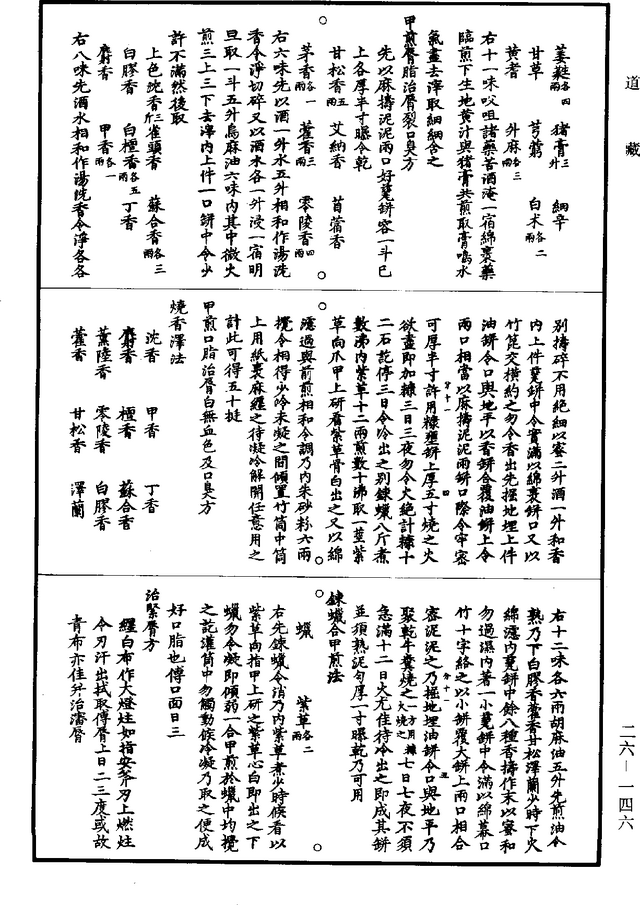 道藏
萎蕤各四兩　猪膏三升　細辛
甘草　芎藭　白术各二兩
黃耆　升麻各三兩
右十一味㕮咀諸藥苦酒淹一宿綿裹藥
臨煎下生地黃汁與猪膏共煎取膏鳴水
氣盡去滓取細細含之
甲煎脣脂治脣裂口臭方
先以麻擣泥泥兩口好瓷缾容一斗已
上各厚半寸曝令乾
甘松香五兩　艾納香　苜蓿香
茅香各一兩　藿香三兩　零陵香四兩
右六味先以酒一升水五升相和作湯洗
香令淨切碎又以酒水各一升浸一宿明
旦取一斗五升烏麻油六味內其中微火
煎三上三下去滓內上件一口缾中令少
許不滿然後取
上色沉香三斤　雀頭香　蘇合香各三兩
白膠香　白檀香各五兩　丁香
麝香　甲香各一兩
右八味先酒水相和作湯洗香令淨各各
別擣碎不用絕細以蜜二升酒一升和香
內上件瓷缾中令實滿以綿裹缾口又以
竹篾交橫約之勿令香出先掘地埋上件
油缾令口與地平以香缾合覆油缾上令
兩口相當以麻擣泥泥兩缾口際令牢密
可厚半寸許用糠壅缾上厚五寸燒之火
欲盡即加糠三日三夜勿令火絕計糠十
二石訖停三日令冷出之別鍊蠟八斤煮
數沸內紫草十二兩煎數十沸取一莖紫
草向爪甲上研看紫草骨白出之又以綿
濾過與前煎相和令調乃內朱砂粉六兩
攪令相得少冷未凝之間傾置竹筒中筒
上用紙裹麻纏之待凝冷解開任意用之
計此可得五十挺
甲煎口脂治脣白無血色及口臭方
燒香澤法
沈香　甲香　丁香
麝香　檀香　蘇合香
薰陸香　零陵香　白膠香
藿香　甘松香　澤蘭
右十二味各六兩胡麻油五升先煎油令
熟乃下白膠香藿香甘松澤蘭少時下火
綿濾內瓷缾中餘八種香擣作末以蜜和
勿過濕內著一小瓷缾中令滿以綿幕口
竹十字絡之以小缾覆大缾上兩口相合
密泥泥之乃掘地埋油缾令口與地平乃
聚乾牛糞燒之一方用糠火燒之七日七夜不須
急滿十二日火尤佳待冷出之即成其缾
並須熟泥勻厚一寸曝乾乃可用
鍊蠟合甲煎法
蠟　紫草各二兩
右先鍊蠟令消乃內紫草煮少時候看以
紫草向指甲上研之紫草心白即出之下
蠟勿令凝即傾弱一合甲煎於蠟中均攪
之訖灌筒中勿觸動候冷凝乃取之便成
好口脂也傅口面日三
治緊脣方
纏白布作大燈炷如指安斧刃上燃炷
令刃汗出拭取傅脣上日二三度或故
青布亦佳并治瀋脣
二六—一四六